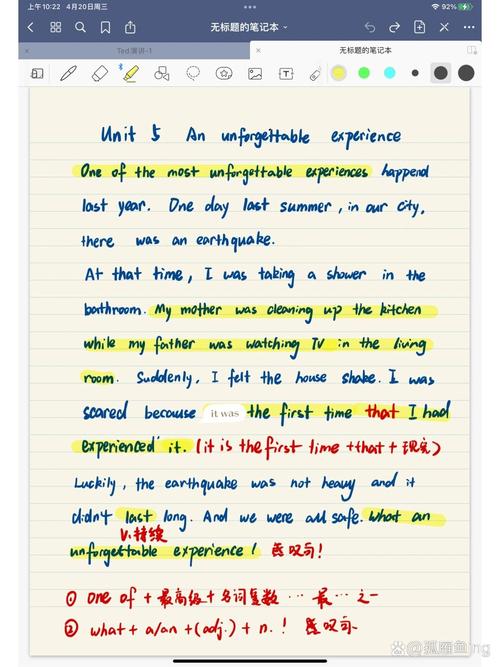 上午10:22 4月20日周三
92%
无标题的笔记本
Ted演讲-1
无标题的笔记本
Unit 5 An unforgettable experience
One of the most unforgettable experiences happend
last year. One day last summer, in our city,
there was an earthquake.
At that time, I was taking a shower in the
bathroom. My mother was cleaning up the kitchen
while my father was watching TV in the living
room. Suddenly, I felt the house shake. I was
scared because it was the first time that I had
experienced it. (it is the first time +that+现完)
Luckily, the earthquake was not heavy and it
didn't last long. And we were all safe. What an
V.持续
unforgettable experience! 感叹句!
① one of + 最高级 + 名词复数 … 最…之一
② what + a/an + (adj.) + n. ! 感叹句.